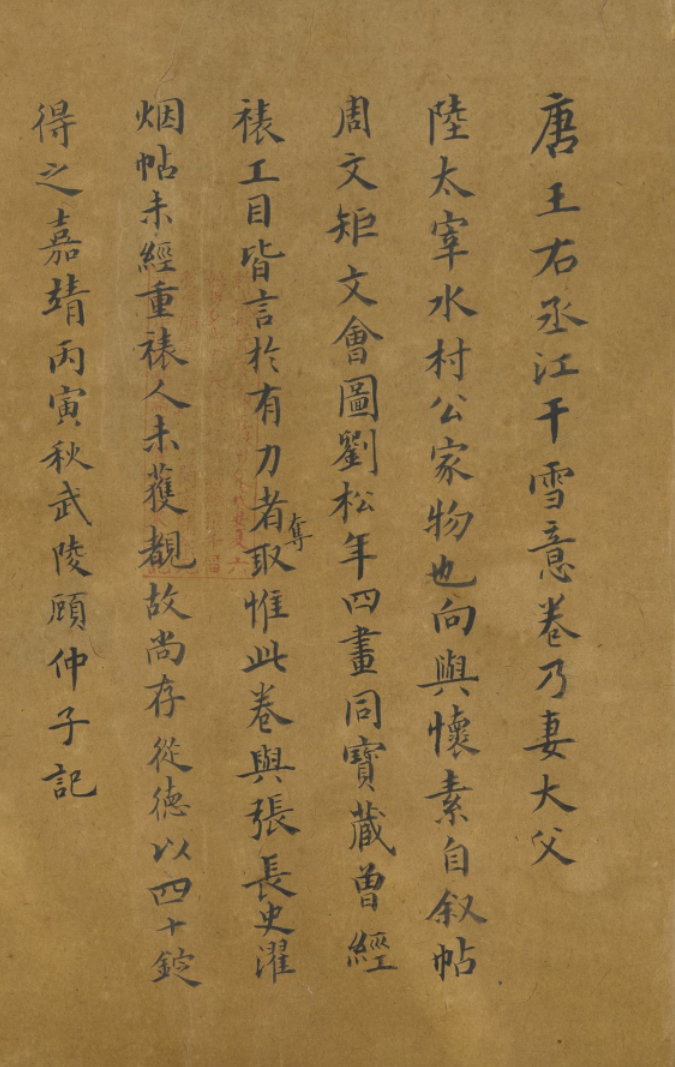 唐王右丞江干雪意卷乃妻大父
陸太宰水村公家物也向與懷素自叙帖
周文矩文會圖劉松年四畫同寶蔵曽經
裱工目皆言於有力者奪取惟此卷與張長史濯
烟帖未經重裱人未獲覩故尚存從徳以四十錠
得之嘉靖丙寅秋武陵顧仲子記